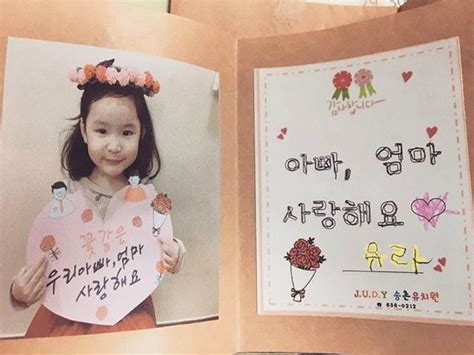 꽃같은
우리아빠,엄마
사랑해요
감사합니다
아빠, 엄마
사랑해요
유라
J.U.D.Y 송촌유치원
636-0212